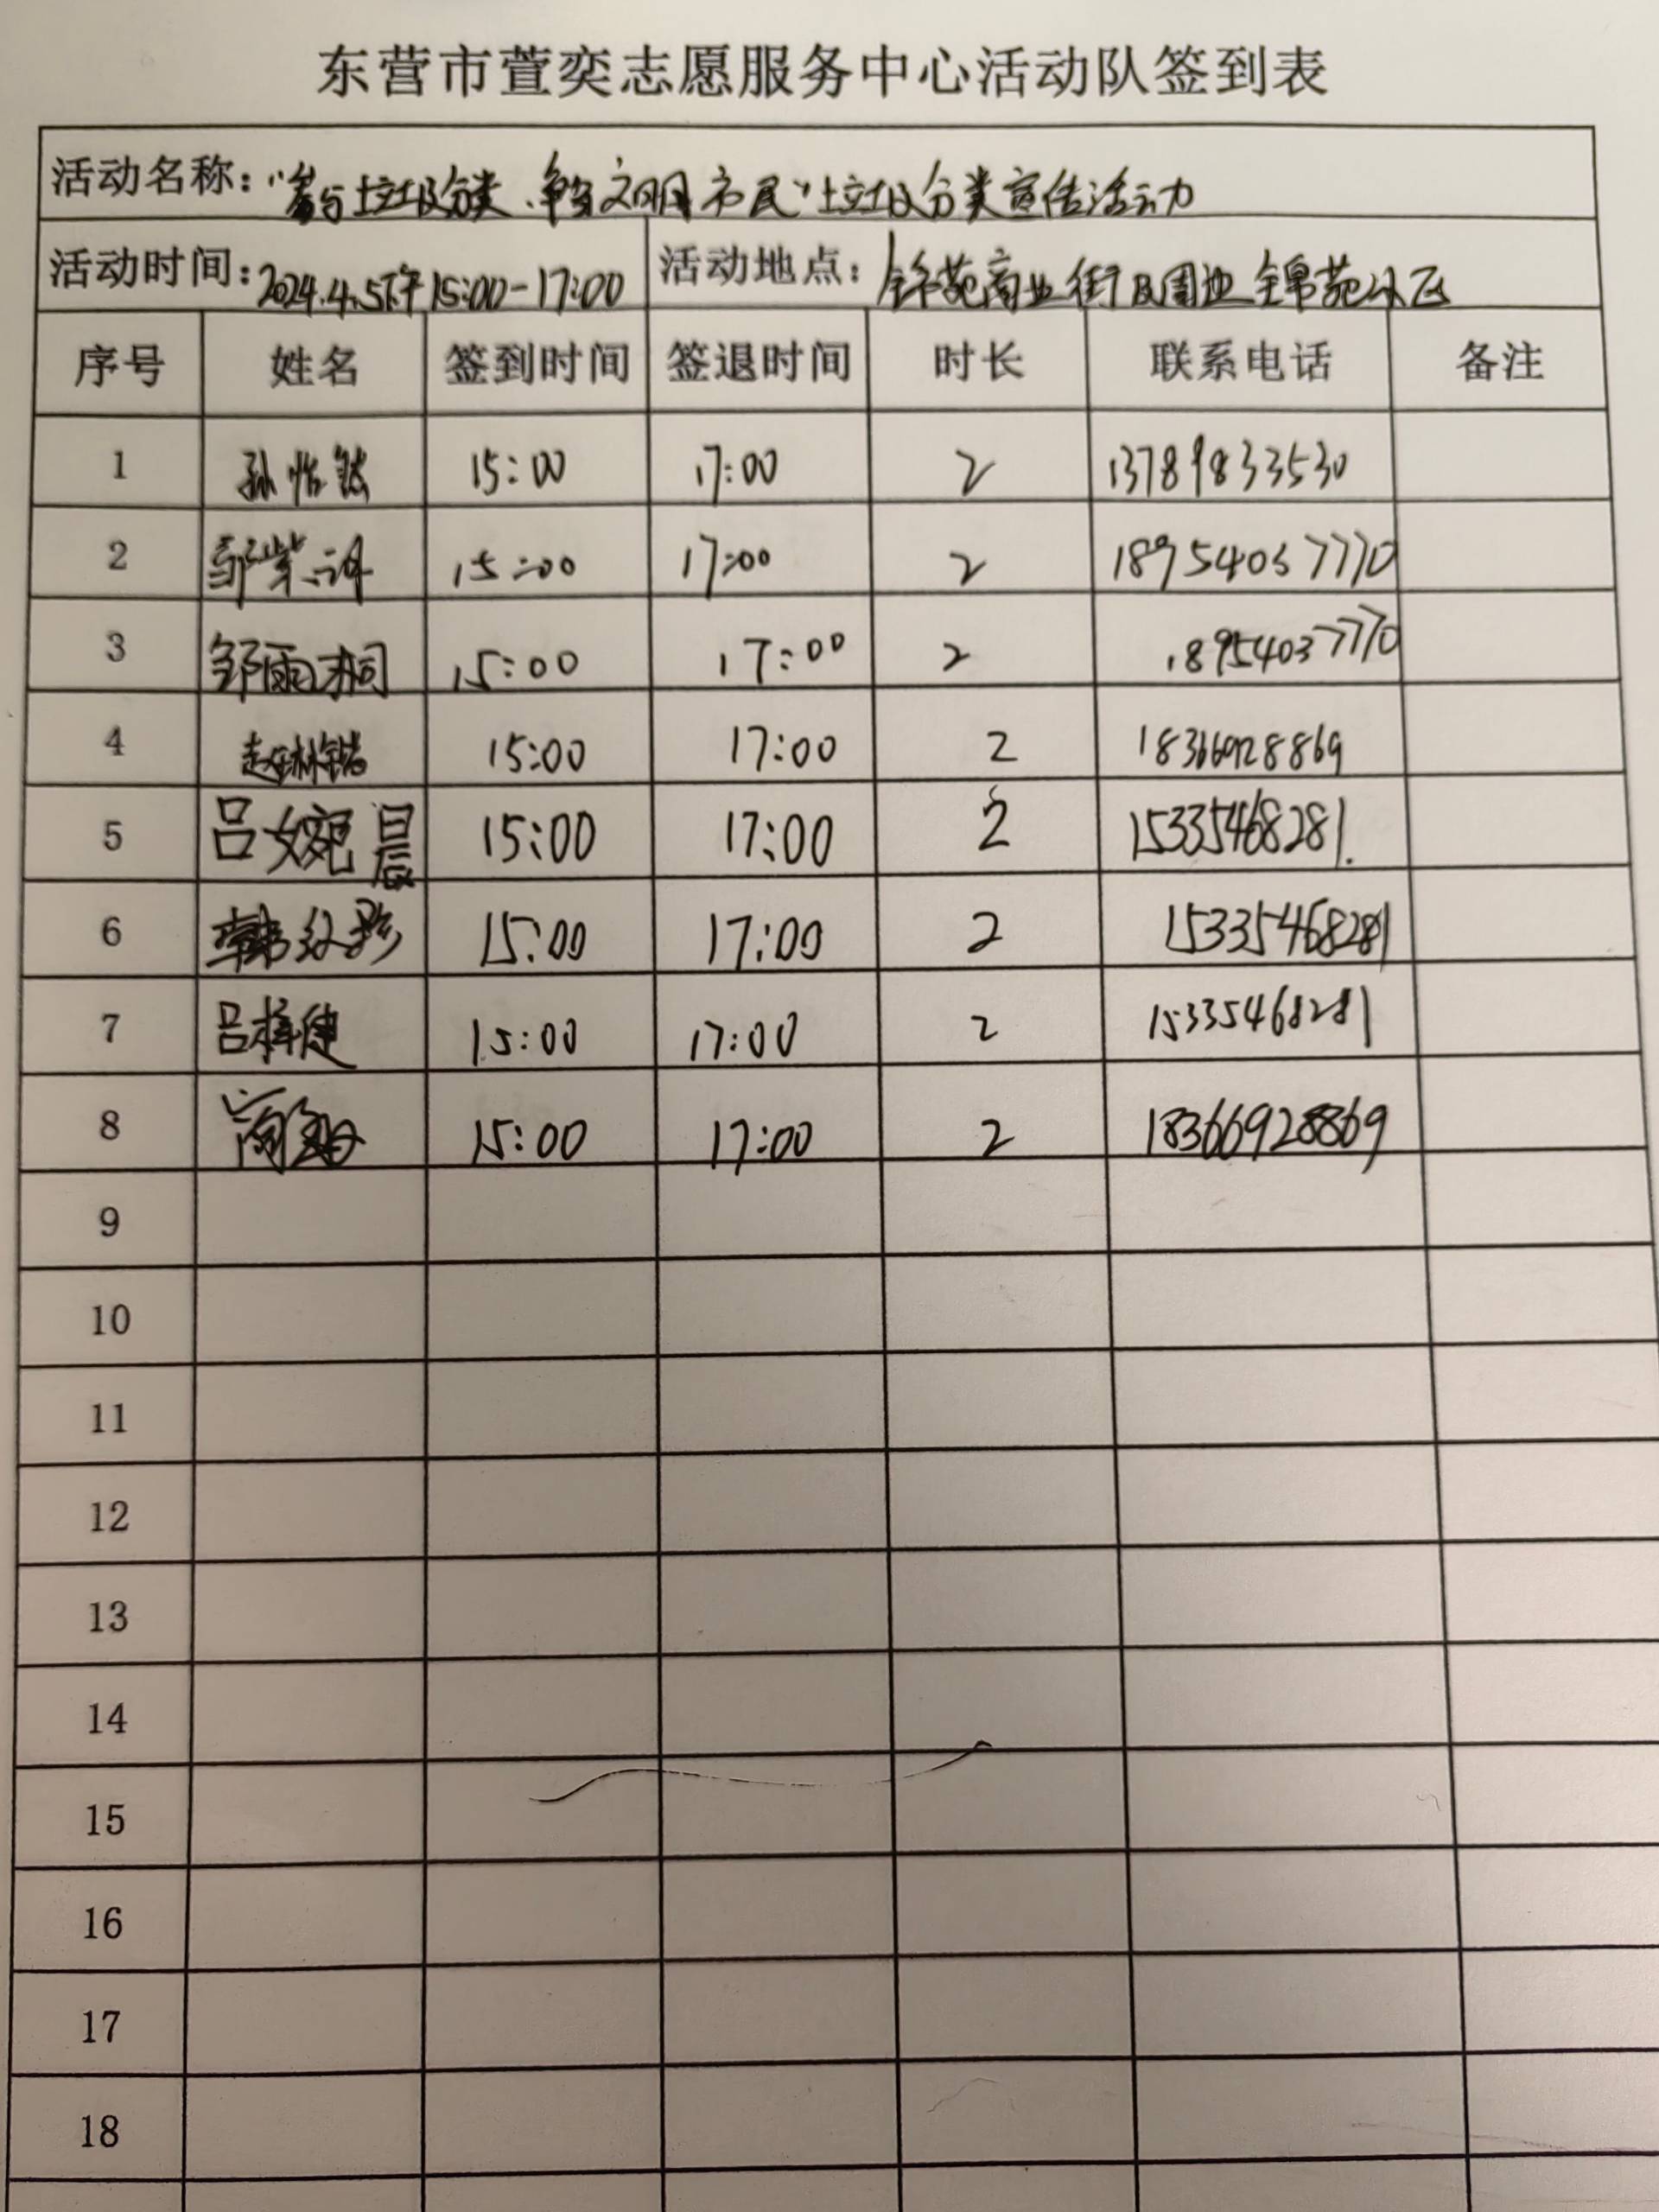 东营市萱奕志愿服务中心活动队签到表
活动名称：“参与垃圾分类、争当文明市民”垃圾分类宣传活动
活动时间：2024.4.5下午15:00-17:00 活动地点：锦苑商业街及周边锦苑小区
序号 姓名 签到时间 签退时间 时长 联系电话 备注
1 孙 15:00 17:00 2 13789833530
2 邹紫 15:00 17:00 2 18954037770
3 邹雨桐 15:00 17:00 2 18954037770
4 赵林锘 15:00 17:00 2 18366928869
5 吕婉晨 15:00 17:00 2 15335468281.
6 韩红珍 15:00 17:00 2 15335468281
7 吕梓健 15:00 17:00 2 15335468281
8 15:00 17:00 2 18366928869
9
10
11
12
13
14
15
16
17
18